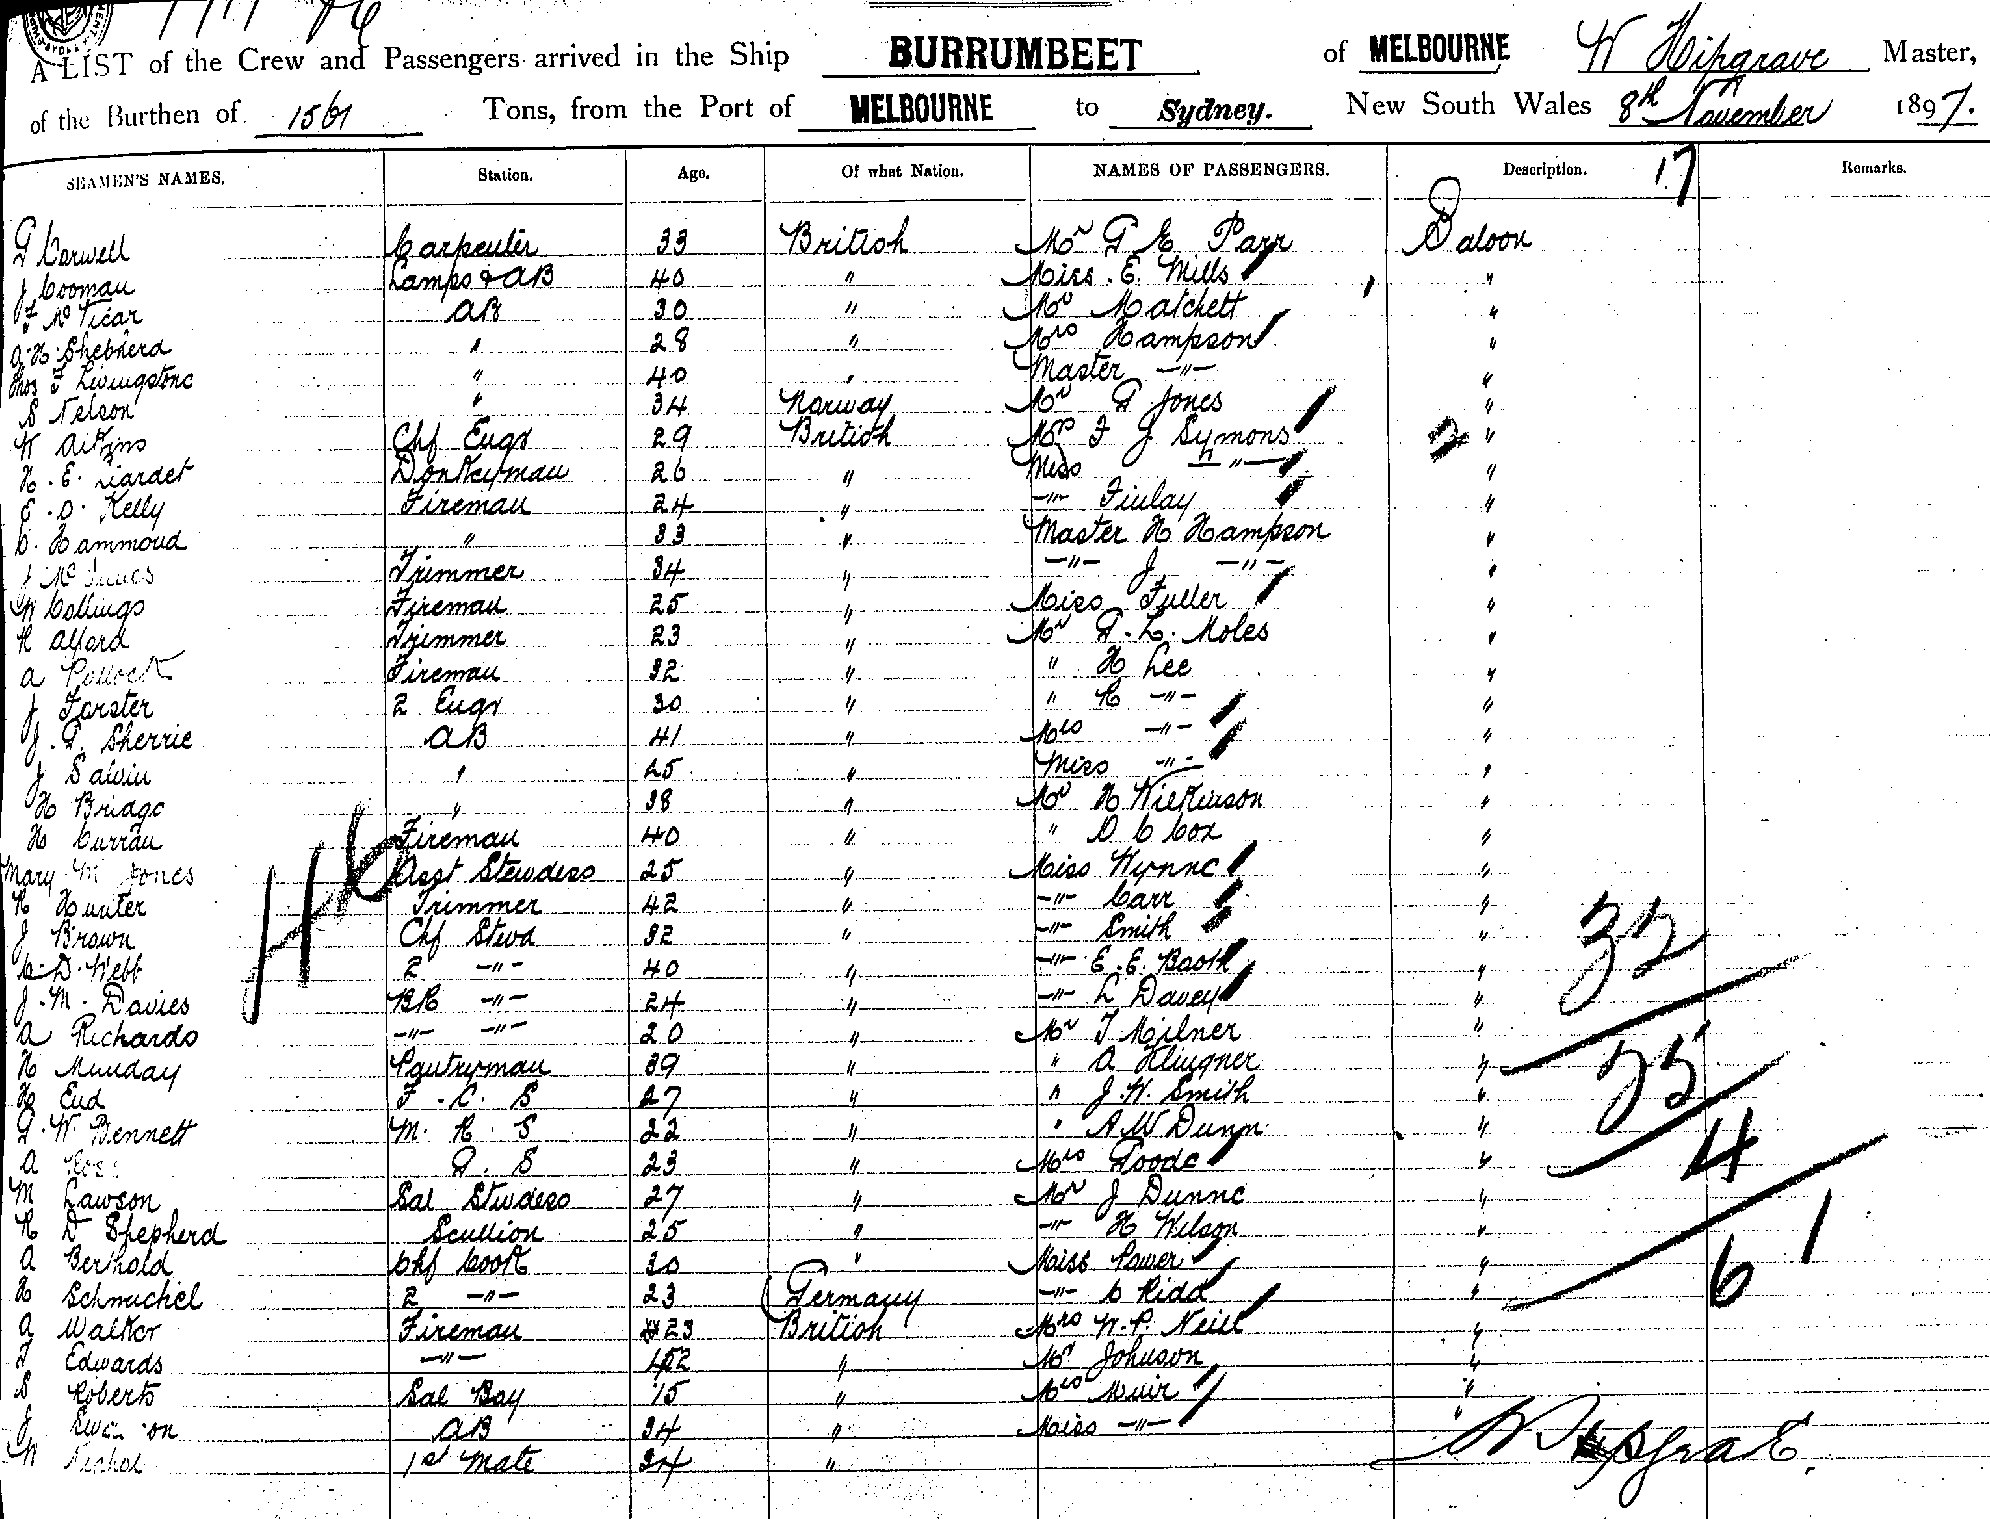 A LIST of the Crew and Passengers arrived in the Ship BURRUMBEET of MELBOURNE W Hipgrave Master,
of the Burthen of 1561 Tons, from the Port of MELBOURNE to Sydney. New South Wales 8th November 1897.
SEAMEN'S NAMES. Station. Age. Of what Nation. NAMES OF PASSENGERS. Description. 17 Remarks.
G Carwell Carpenter 33 British Mr G E Parr Saloon
J Cooman Lamps & AB 40 " Miss E. Mills "
F McVicar AB 30 " Mr Matchett "
A. H. Shepherd " 28 " Mrs Hampson "
Thos F Livingstone " 40 " Master —"— "
S Nelson " 34 Norway Mr G Jones "
W Aitkins Chf Engr 29 British F J Symons "
H. E. Liardet Donkeyman 26 " Miss —"— "
E. O. Kelly Fireman 24 " —"— Finlay "
C. Hammond " 33 " Master H Hampson "
Trimmer 34 " —"— J —"— "
W Collings Fireman 25 " Miss Fuller "
R Alford Trimmer 23 " Mr G. L. Moles "
A Pollock Fireman 32 " " H Lee "
J Forster 2 Engr 30 " " R —"— "
J. G. Sherrie AB 41 " Mrs —"— "
J Salvin " 25 " Miss —"— "
H Bridge " 38 " Mr H Wilkinson "
H Curran Fireman 40 " " D C Cox "
Mary M Jones Asst Stewdess 25 " Miss Wynne "
R Hunter Trimmer 42 " —"— Carr "
J Brown Chf Stewd 32 " —"— Smith "
C. D. Webb 2 —"— 40 " —"— E. E. Booth "
J. M. Davies BR —"— 24 " —"— L Davey "
A Richards —"— —"— 20 " Mr T Milner "
H Munday Pantryman 39 " " A Klingner "
H End F. C. S 27 " " J. W. Smith "
G. W. Bennett M. R. S 22 " " A W Dunn "
A Ross G. S 23 " Mrs Goode "
M Lawson Sal Stwdess 27 " Mr J Dunne "
R D Shepherd Scullion 25 " —"— H Wilson "
A Berthold Chf Cook 30 " Miss Power "
H Schmuckel 2 —"— 23 Germany —"— C Ridd "
A Walker Fireman 23 British Mrs W. P. Neill "
T Edwards —"— " Mr Johnson "
S Roberts Sal Boy 15 " Mrs Muir "
J AB 34 " Miss —"— "
W Nichol 1st Mate 34 "
46
32
25
4
61
W Hipgrave.